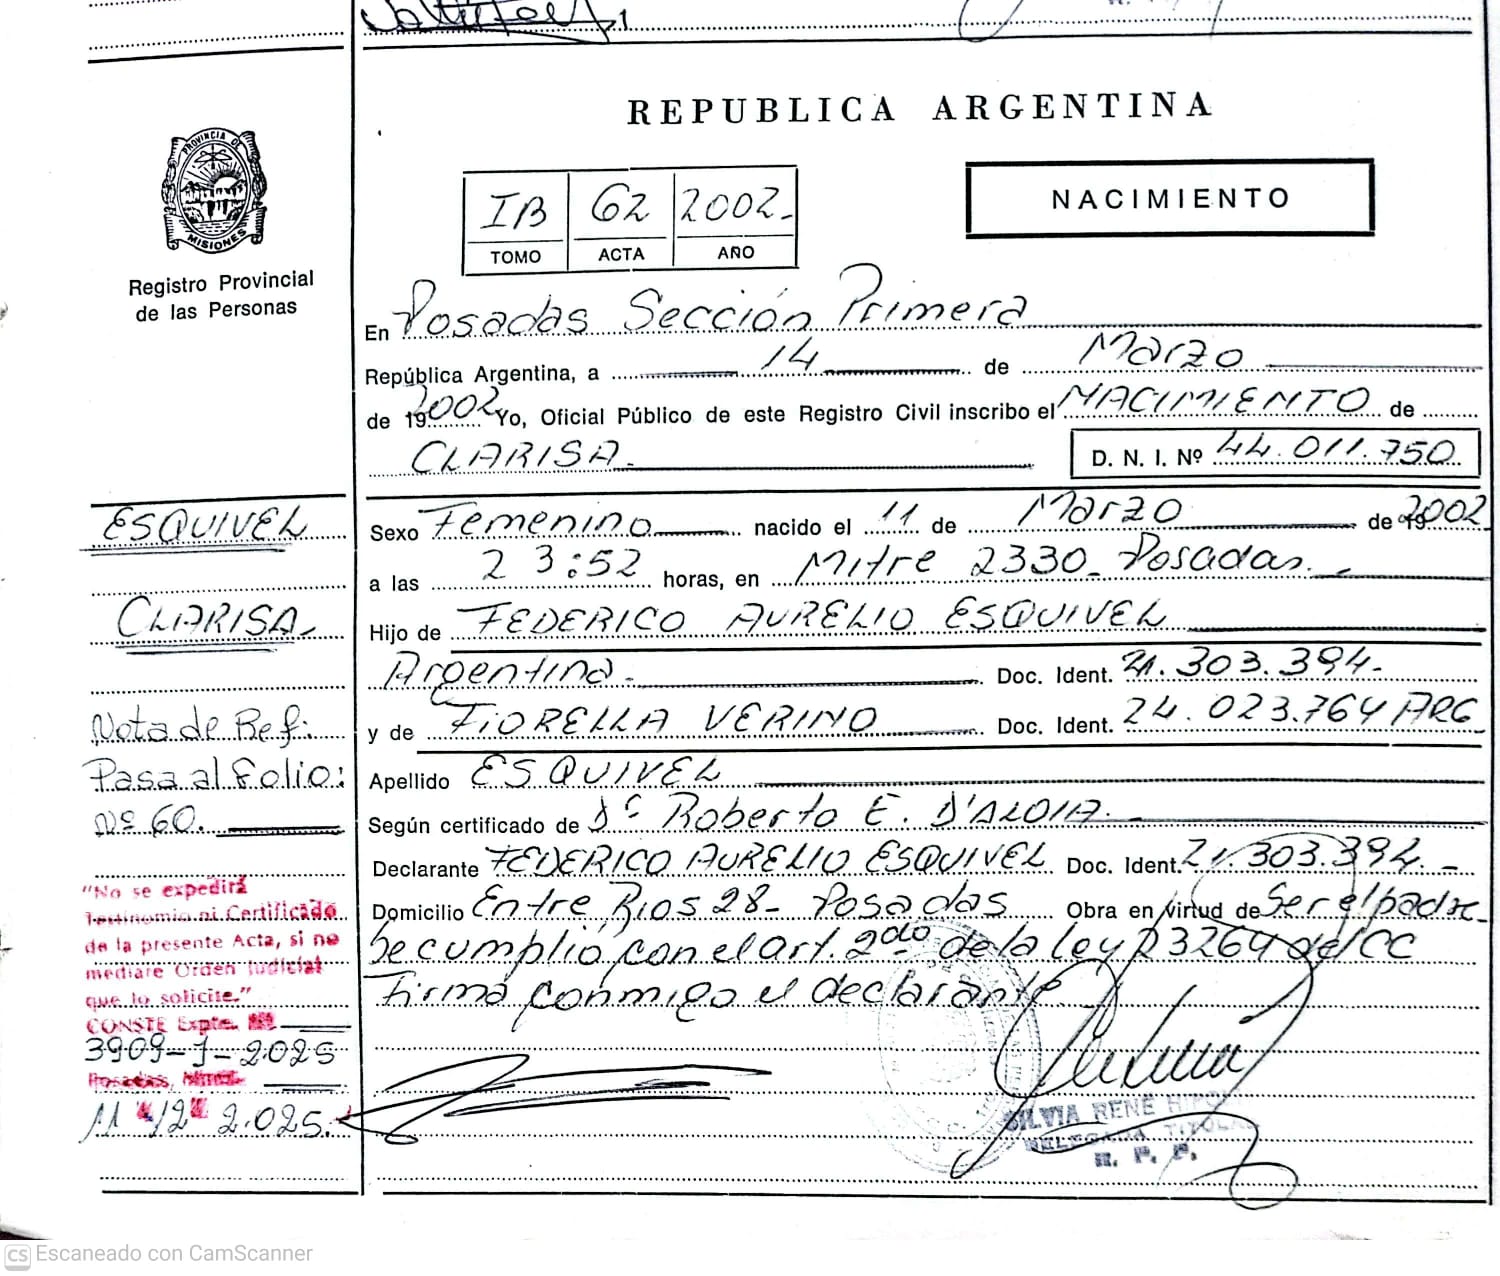 REPUBLICA ARGENTINA
PROVINCIA DE
MISIONES
Registro Provincial
de las Personas
IB 62 2002
TOMO ACTA AÑO
NACIMIENTO
En Posadas Sección Primera
República Argentina, a 14 de Marzo
de 19 2002 Yo, Oficial Público de este Registro Civil inscribo el NACIMIENTO de
CLARISA. D. N. I. Nº 44.011.750
ESQUIVEL
CLARISA
Nota de Ref:
Pasa al Folio:
Nº 60.
"No se expedirá
Testimonio ni Certificado
de la presente Acta, si no
mediare Orden Judicial
que lo solicite."
CONSTE Expte.
3909-J-2025
Posadas,
11 12 2.025.
Sexo Femenino nacido el 11 de Marzo de 19 2002
a las 23:52 horas, en Mitre 2330_ Posadas.
Hijo de FEDERICO AURELIO ESQUIVEL
Argentina. Doc. Ident. 21.303.394.
y de FIORELLA VERINO Doc. Ident. 24.023.764 ARG
Apellido ESQUIVEL
Según certificado de Dr Roberto E. D'ALOIA.
Declarante FEDERICO AURELIO ESQUIVEL Doc. Ident. 21.303.394.
Domicilio Entre Rios 28- Posadas Obra en virtud de Ser el padre
Se cumplió con el art. 2do de la Ley 23264 del CC
Firma conmigo el declarante
SILVIA RENE
DELEGADA TITULAR
R. P. P.
CS Escaneado con CamScanner